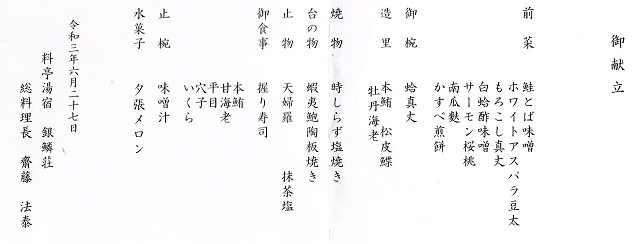 御献立
前菜　鮭とば味噌
ホワイトアスパラ豆太
もろこし真丈
白蛤酢味噌
サーモン桜桃
南瓜麩
かすべ煎餅
御椀　蛤真丈
造里　本鮪　松皮鰈
牡丹海老
焼物　時しらず塩焼き
台の物　蝦夷鮑陶板焼き
止物　天婦羅　抹茶塩
御食事　握り寿司
本鮪
甘海老
平目
穴子
いくら
止椀　味噌汁
水菓子　夕張メロン
令和三年六月二十七日
料亭湯宿　銀鱗荘
総料理長　齋藤　法泰